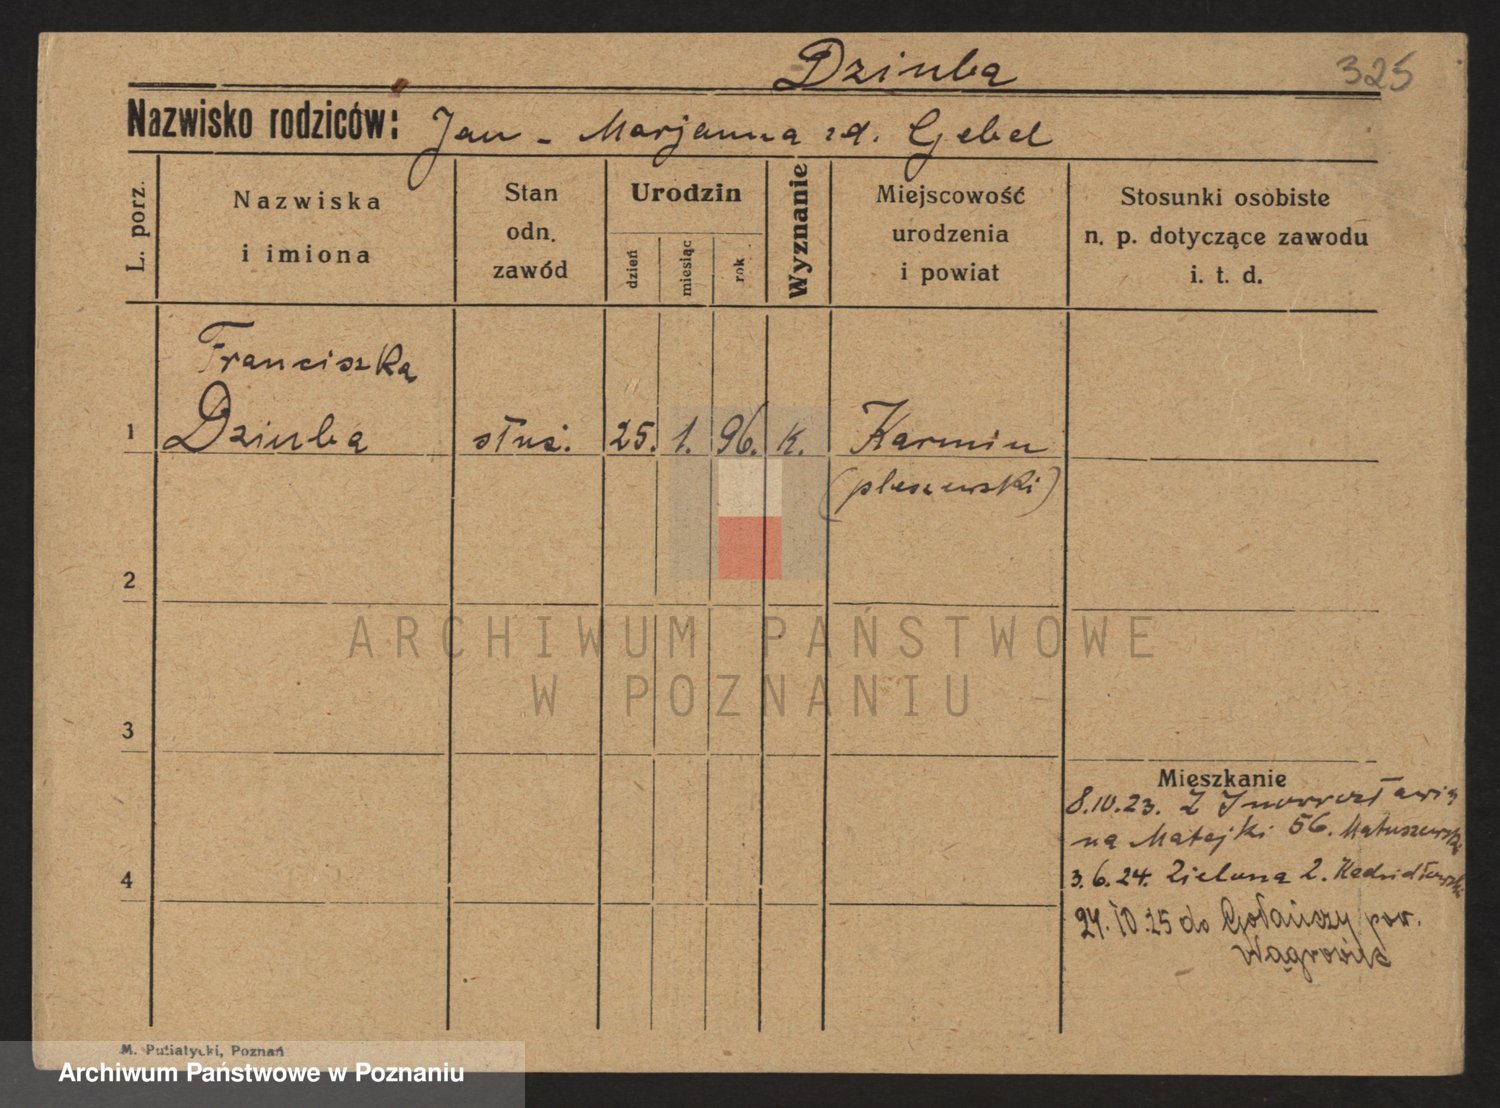 Dziuba 325
Nazwisko rodziców: Jan - Marjanna zd. Gebel
L. porz.
Nazwiska i imiona
Stan odn. zawód
Urodzin
dzień miesiąc rok
Wyznanie
Miejscowość urodzenia i powiat
Stosunki osobiste n. p. dotyczące zawodu i. t. d.
Franciszka
1 Dziuba służ. 25. 1. 96. k. Karmin
(pleszewski)
2
ARCHIWUM PAŃSTWOWE
W POZNANIU
3
Mieszkanie
8.10.23. Z Inowrocławia
na Matejki 56. Matuszewski
4
3.6.24. Zielona 2.
24.10.25 do Gołańczy pow.
Wągrowiec
M. Putiatycki, Poznań
Archiwum Państwowe w Poznaniu